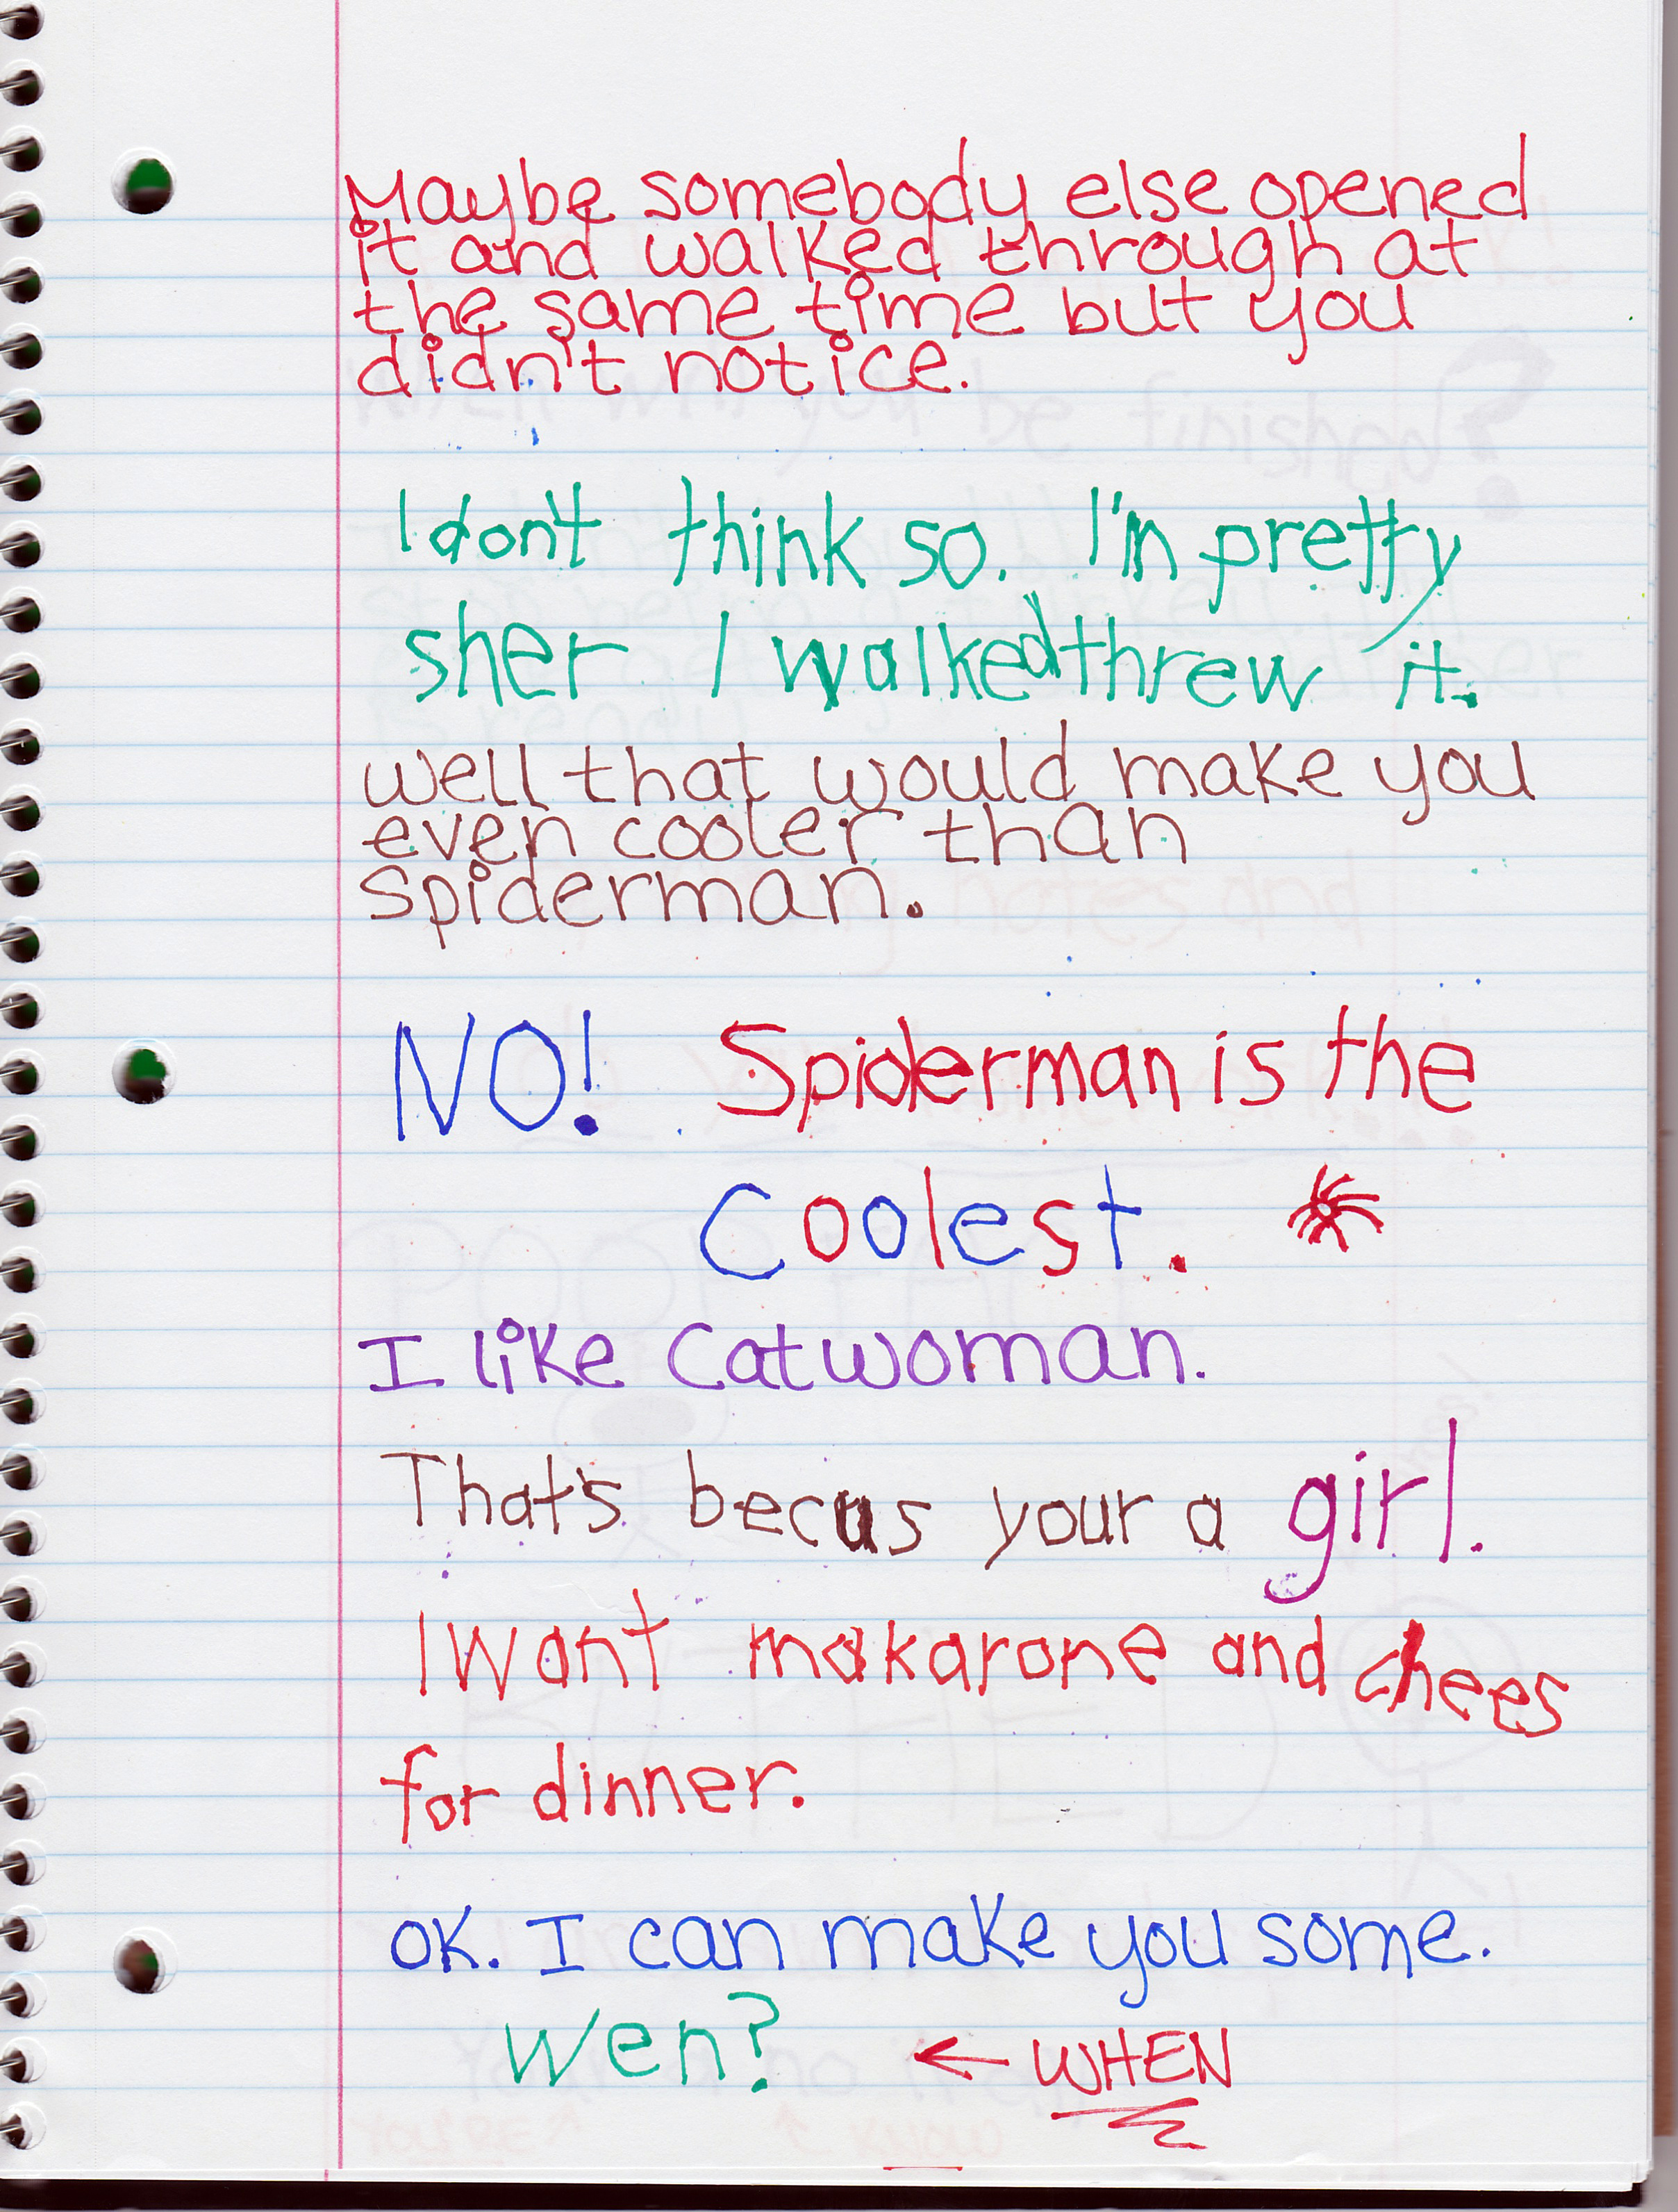 Maybe somebody else opened
it and walked through at
the same time but you
didn't notice.
I don't think so. I'm pretty
sher I walked threw it.
well that would make you
even cooler than
spiderman.
NO! Spiderman is the
Coolest.
I like Catwoman.
That's becus your a girl.
I want makarone and chees
for dinner.
OK. I can make you some.
Wen? ← WHEN